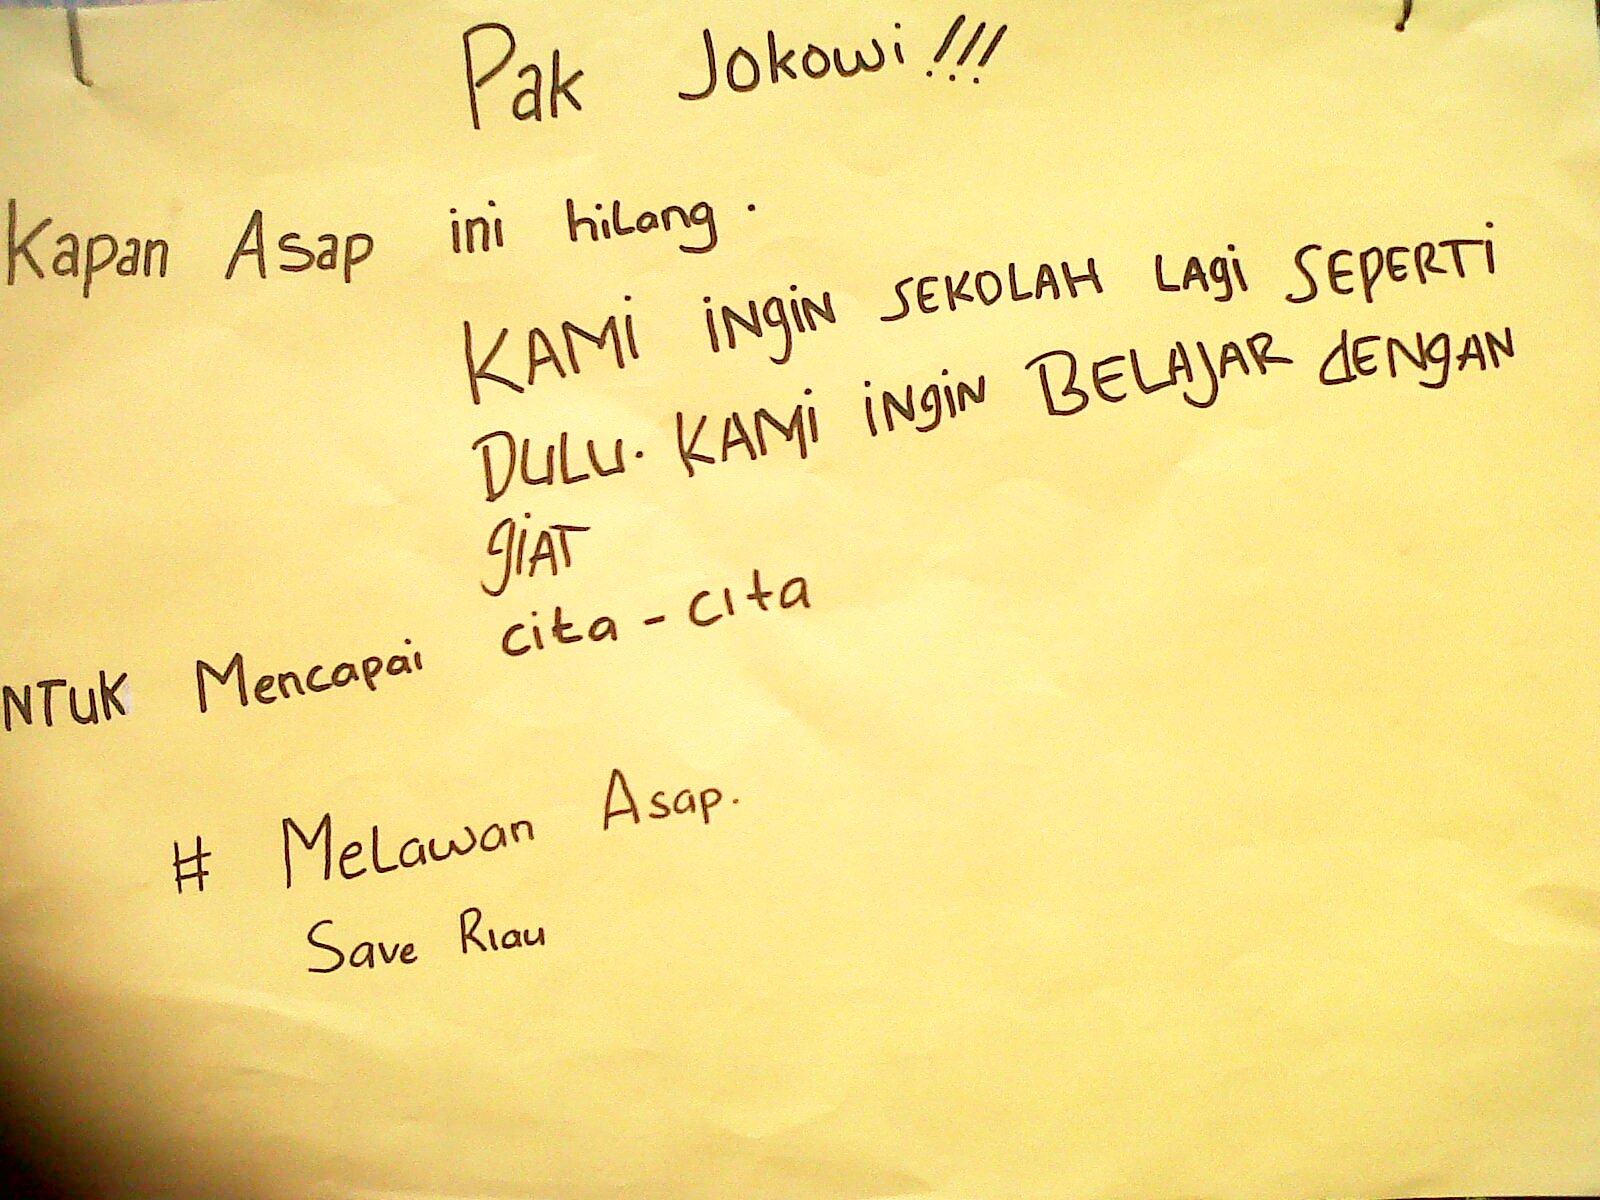 Pak Jokowi!!!
Kapan Asap ini hilang.
KAMi iNgiN SEKOLAH LAgi SEPERTi
DULU. KAMi iNgiN BELAJAR dENgAN
giAT
NTUK Mencapai cita-cita
# MeLawan Asap.
Save Riau